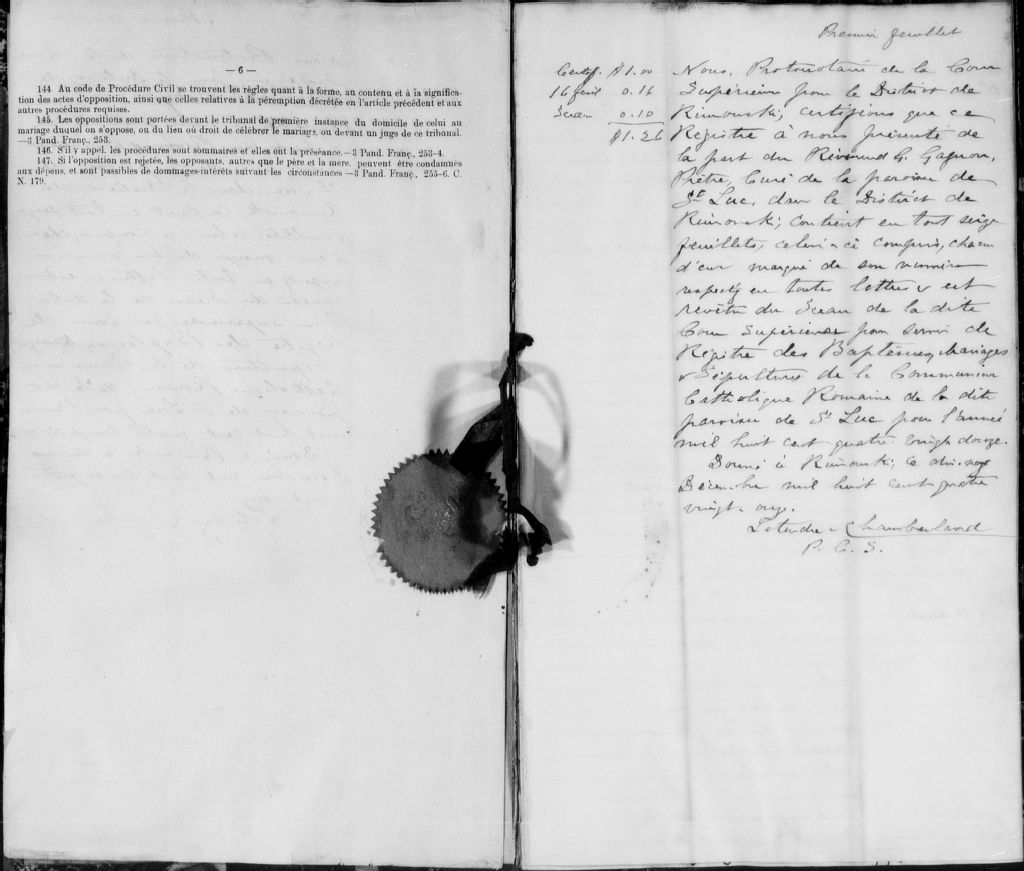 — 6 —
144 Au code de Procédure Civil se trouvent les règles quant à la forme, au contenu et à la significa-
tion des actes d'opposition, ainsi que celles relatives à la péremption décrétée en l'article précédent et aux
autres procédures requises.
145. Les oppositions sont portées devant le tribunal de première instance du domicile de celui au
mariage duquel on s'oppose, ou du lieu où droit de célébrer le mariage, ou devant un juge de ce tribunal.
—3 Pand. Franç., 253.
146. S'il y appel, les procédures sont sommaires et elles ont la préséance.—3 Pand. Franç., 253-4.
147. Si l'opposition est rejetée, les opposants, autres que le père et la mère, peuvent être condamnés
aux dépens, et sont passibles de dommages-intérêts suivant les circonstances —3 Pand. Franç., 255-6. C.
N. 179.
Premier feuillet
Certif. $1.00
16 feuil 0.16
Sceau 0.10
$1.26
Nous, Protonotaire de la Cour
Supérieure pour le District de
Rimouski, certifions que ce
Régistre à nous présenté de
la part du Révérend G. Gagnon,
Prêtre, Curé de la paroisse de
St Luc, dans le District de
Rimouski, contient en tout seize
feuillets, celui-ci compris, chacun
d'eux marqué de son numéro
respectif en toutes lettres & est
revêtu du Sceau de la dite
Cour Supérieure pour servir de
Régistre des Baptêmes, Mariages
& Sépultures de la Communion
Catholique Romaine de la dite
paroisse de St Luc pour l'année
mil huit cent quatre vingt douze.
Donné à Rimouski, ce dix-neuf
Décembre mil huit cent quatre
vingt-onze.
Letendre & Chamberland
P. C. S.